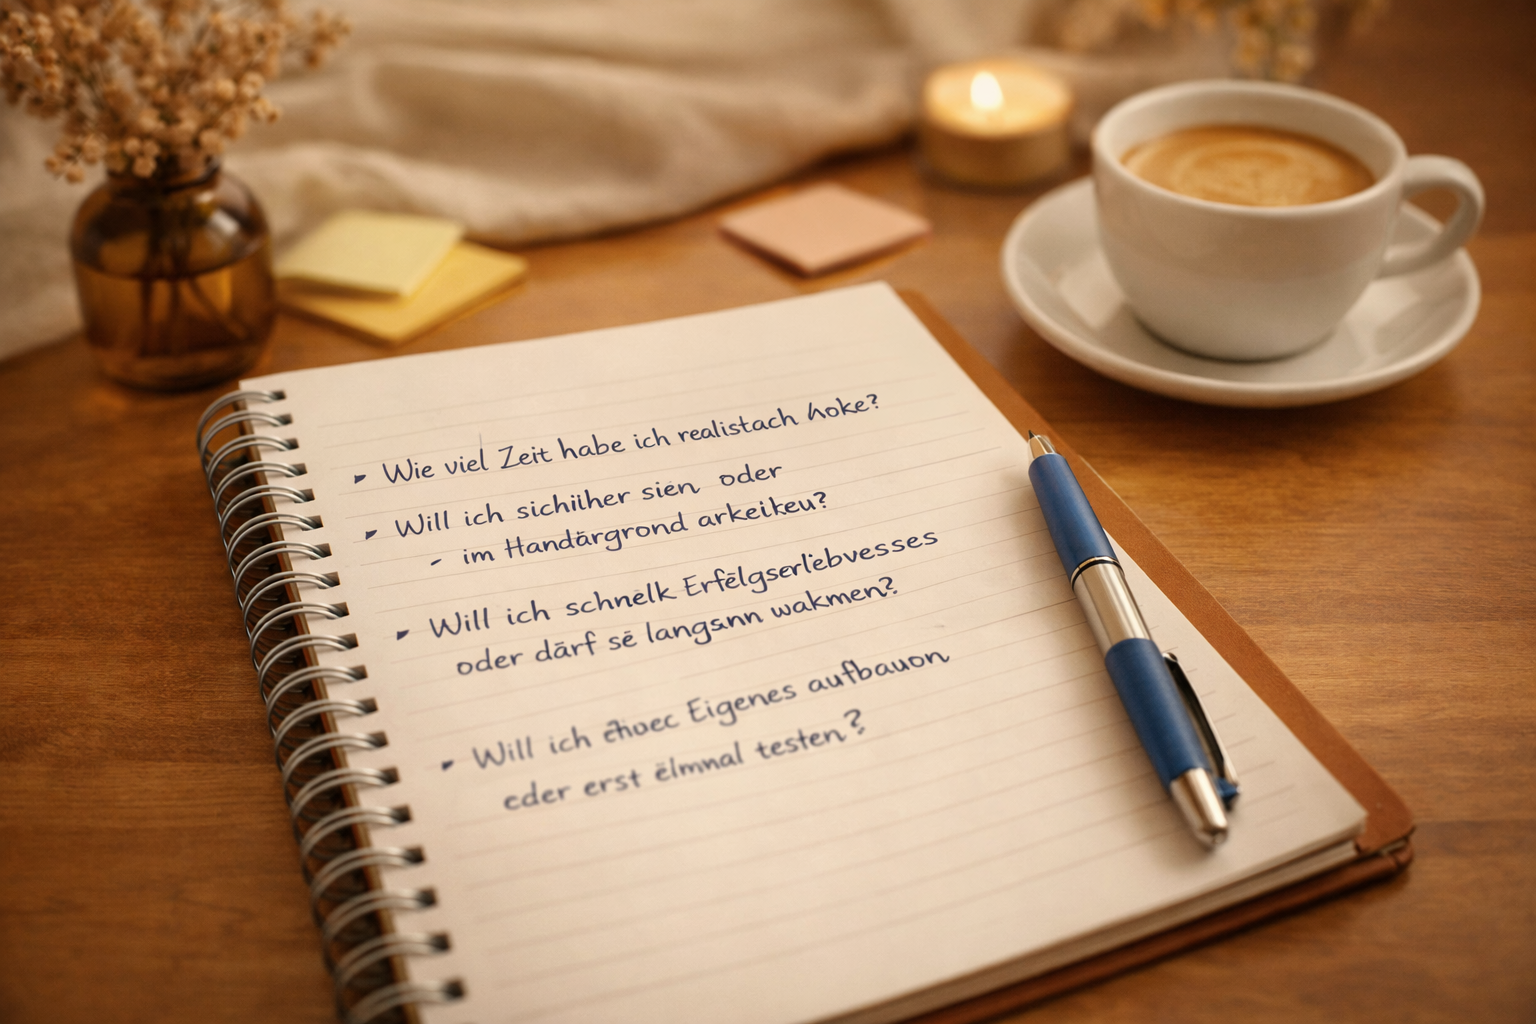 ▸ Wie viel Zeit habe ich realistach hoke?
▸ Will ich sichiiher sien oder
- im Handärgrond arkeikeu?
▸ Will ich schnelk Erfëlgserlebvesses
oder därf së langsnn wakmen?
▸ Will ich ëhuec Eigenes aufbauon
eder erst ëlmnal testen?